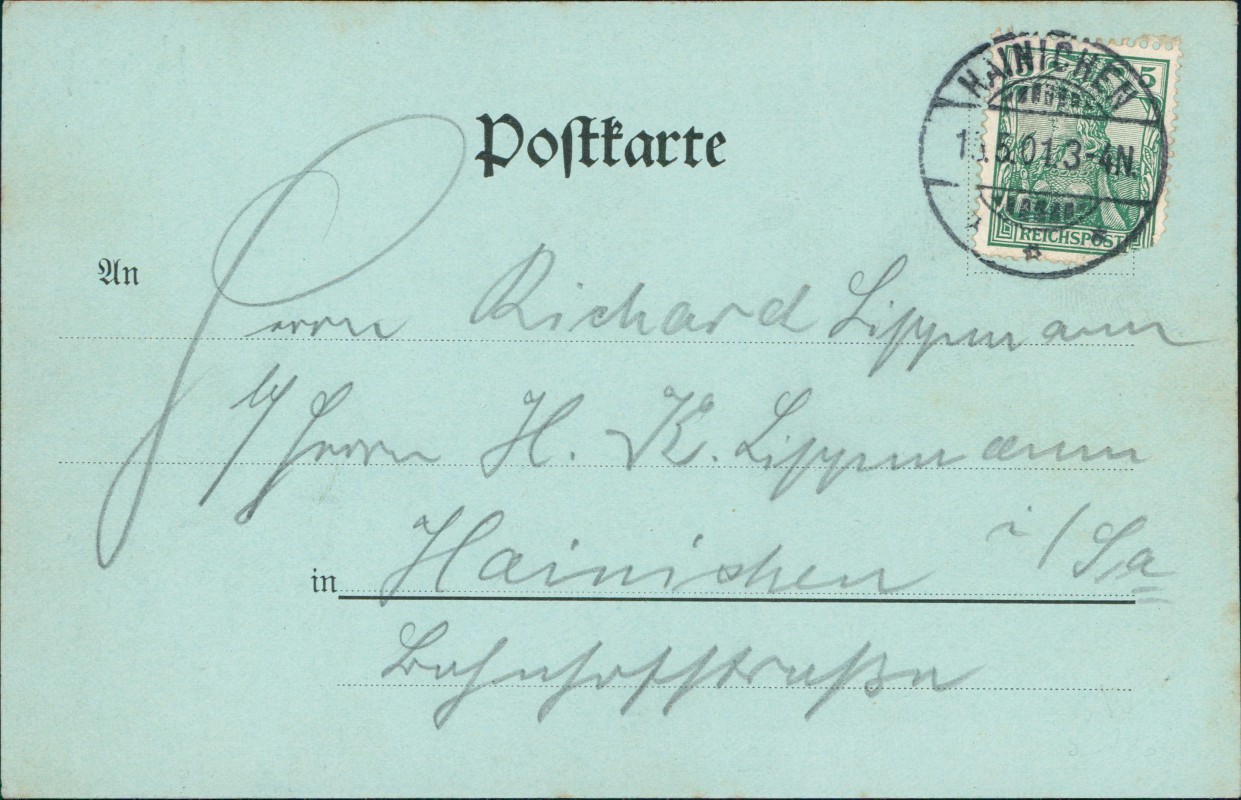 HAINICHEN
5.01.3-4N.
5
REICHSPOST
Postkarte
An
Herrn Richard Lippmann
b/ Herrn H. K. Lippmann
in Hainichen i/Sa
Bahnhofstraße